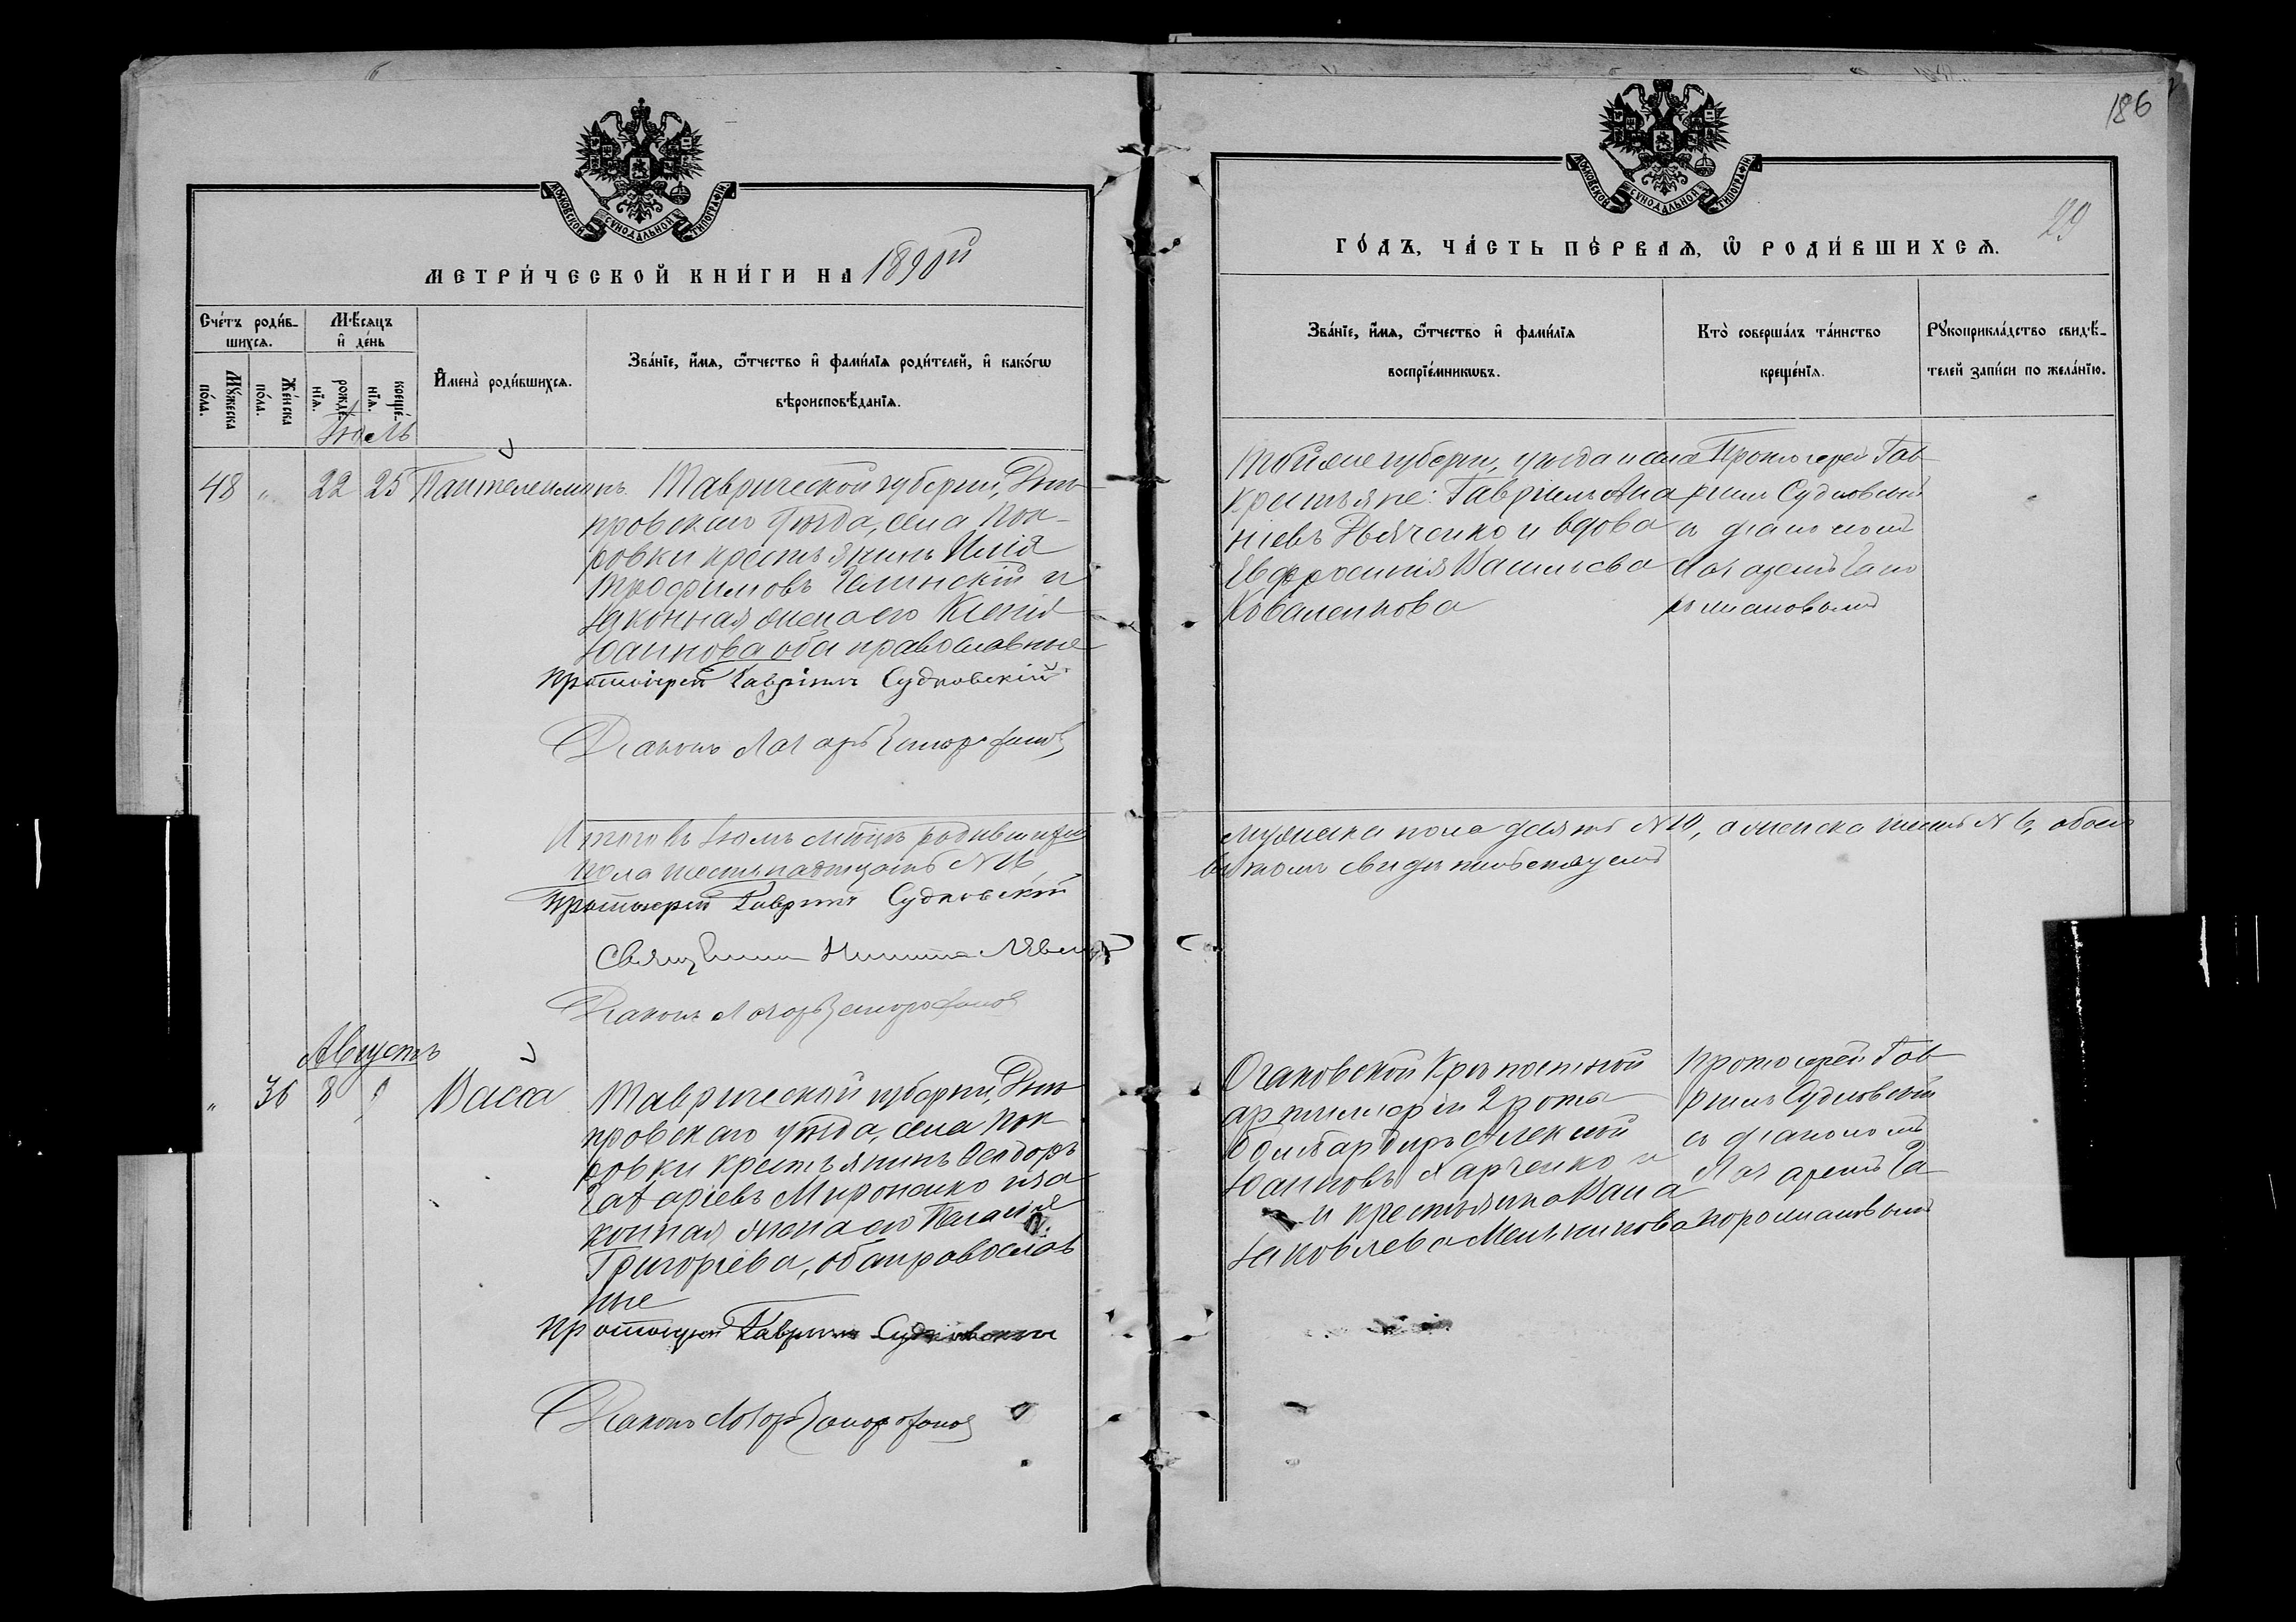 МОСКОВСКОЙ СУНОДАЛЬНОЙ ТИПОГРАФІИ
МЕТРИ́ЧЕСКОЙ КНИ́ГИ НА 1890й
Сче́тъ роди́в-
шихсѧ.
Мꙋ́жеска
по́ла.
Же́нска
по́ла.
Мѣ́сѧцъ
и҆ де́нь
рожде́-
нїѧ.
креще́-
нїѧ.
И҆мена̀ роди́вшихсѧ.
Зва́нїе, и҆́мѧ, ѻ҆́тчество и҆ фами́лїѧ роди́телей, и҆ како́гѡ
вѣроисповѣ́данїѧ.
Іюль
48 " 22 25 Пантелеимонъ
Таврической губерніи, Днѣ-
провскаго уѣзда, села Пок-
ровки крестьянинъ Илія
Трофимовъ и
законная жена его Ксенія
Іоаннова оба православные
Протоіерей Гавріилъ Судковскій
Діаконъ Лазарь
Итого въ Іюлѣ мѣсяцѣ родившихся
пола шестнадцать N 16,
Протоіерей Гавріилъ Судковскій
Священникъ Никита
Діаконъ Лазарь
Августъ
" 36 8 9 Васса
Таврической губерніи, Днѣ-
провскаго уѣзда, села Пок-
ровки крестьянинъ Ѳеодоръ
Захаріевъ Мироненко и за-
конная жена его Пелагія
Григоріева, оба православ-
ные
Протоіерей Гавріилъ Судковскій
Діаконъ Лазарь
186
29
МОСКОВСКОЙ СУНОДАЛЬНОЙ ТИПОГРАФІИ
ГО́ДЪ, ЧА́СТЬ ПЕ́РВАѦ, Ѡ҆ РОДИ́ВШИХСѦ.
Зва́нїе, и҆́мѧ, ѻ҆́тчество и҆ фами́лїѧ
воспрїе́мникѡвъ.
Кто̀ соверша́лъ та́инство
креще́нїѧ.
Рꙋкоприкла́дство свидѣ́-
телей за́писи по жела́нїю.
Той же губерніи, уѣзда и села
крестьяне: Гавріилъ Ана-
ніевъ Дьяченко и вдова
Евфросинія Васильева
Коваленкова
Протоіерей Гав-
ріилъ Судковскій
съ діакономъ
Лазаремъ
мужеска пола десять N 10, а женска шесть N 6, обоего
въ томъ свидѣтельствуемъ
Очаковской Крѣпостной
артиллеріи 2 роты
бомбардиръ Алексѣй
Іоанновъ Харченко
и крестьянка
Іаковлева Мельникова
Протоіерей Гав-
ріилъ Судковскій
съ діакономъ
Лазаремъ